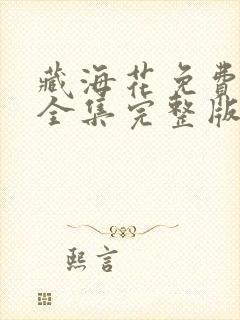 藏海花免費
全集完整版
熙言